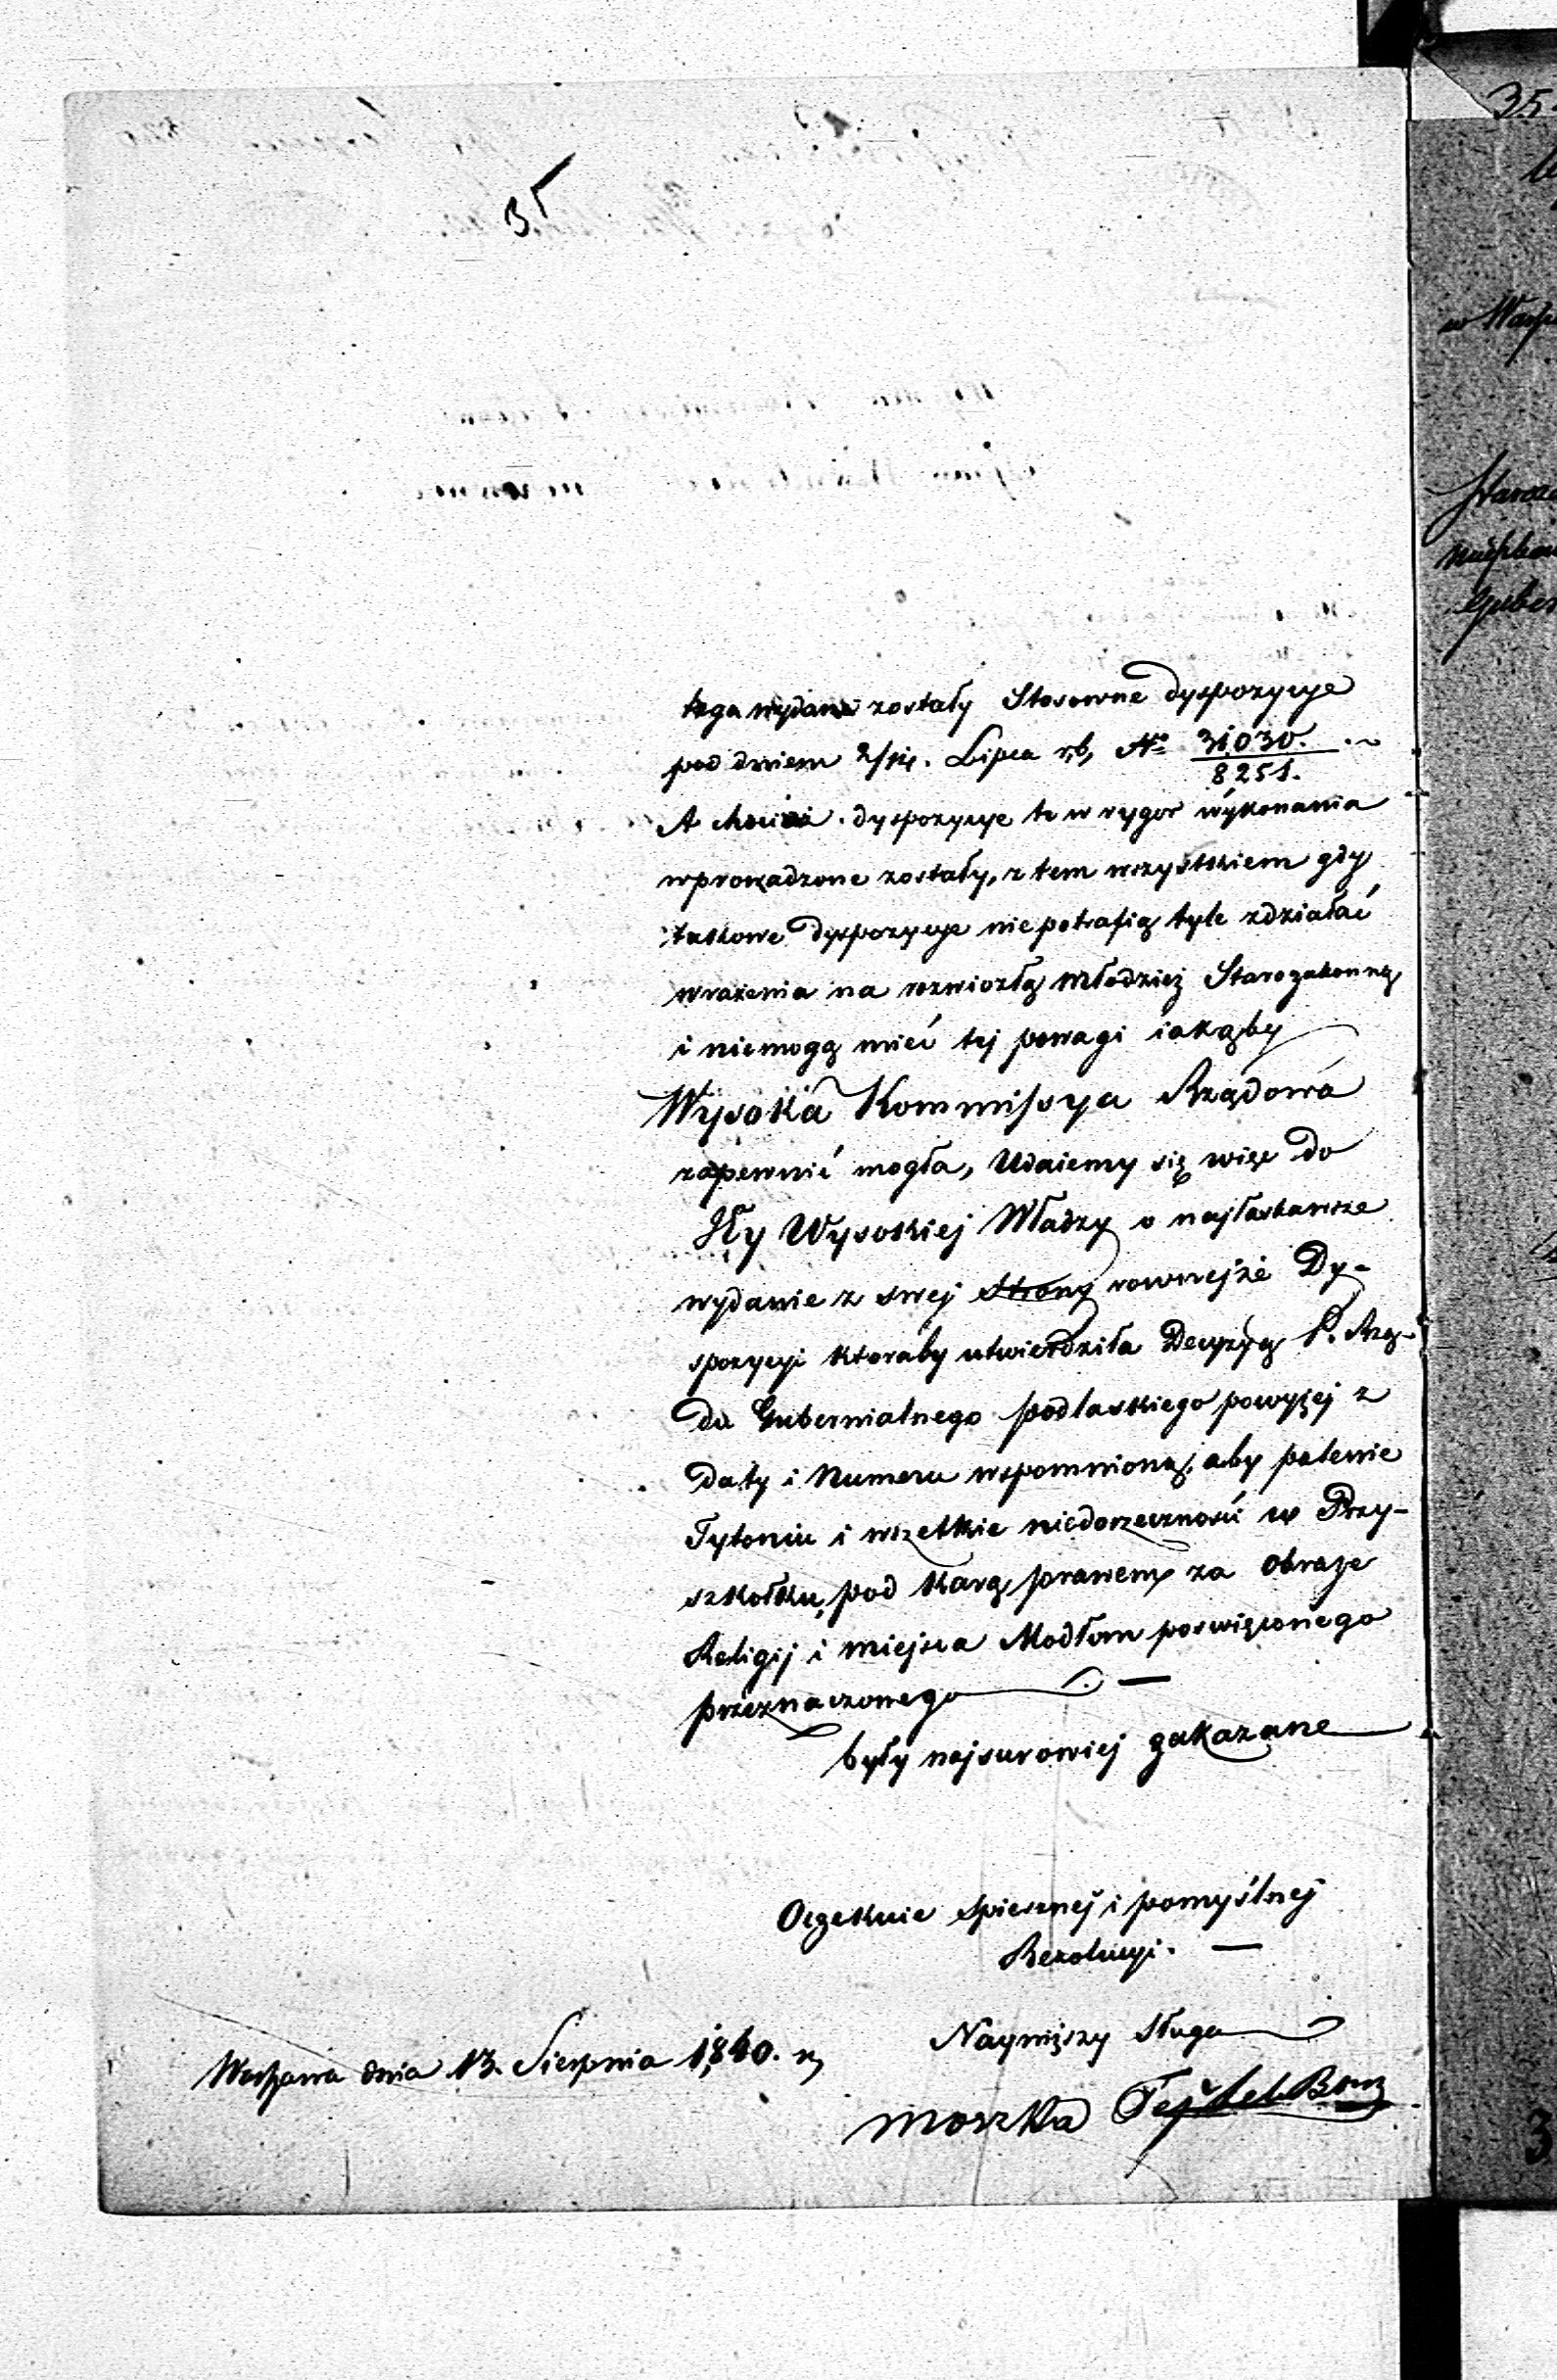 35
tego wydane zostały Stosowne dyspozycye
pod dniem 2/14. Lipca r,b, No 31,030.
8251.
A chociaż dyspozycye te w rygor wykonania
wprowadzone zostały, z tem wszystkiem gdy
takowe Dyspozycye nie potrafią tyle zdziałać
wrażenia na rozwiozłą Młodzież Starozakonną
i niemogą mieć tej powagi iakąby
Wysoka Kommissya Rządowa
zapewnić mogła, Udaiemy się więc do
Wysokiej Władzy o najłaskawsze
wydanie z swej Strony rownejże Dy-
spozycyi ktoraby utwierdziła Decyzyą Rzą-
du Gubernialnego podlaskiego powyżej z
Daty i Numeru wspomnioną, aby palenie
Tytoniu i wszelkie niedorzeczności w Przy-
szkołku, pod karą prawem za Obrazę
Religij i miejsca Modłom poswięconego
przeznaczonego. —
były najsurowiej zakazane
Oczekuie Spiesznej i pomyślnej
Rezolucyi. —
Nayniższy Sługa
Warszawa dnia 13. Sierpnia 1840. r,
Moszka
35